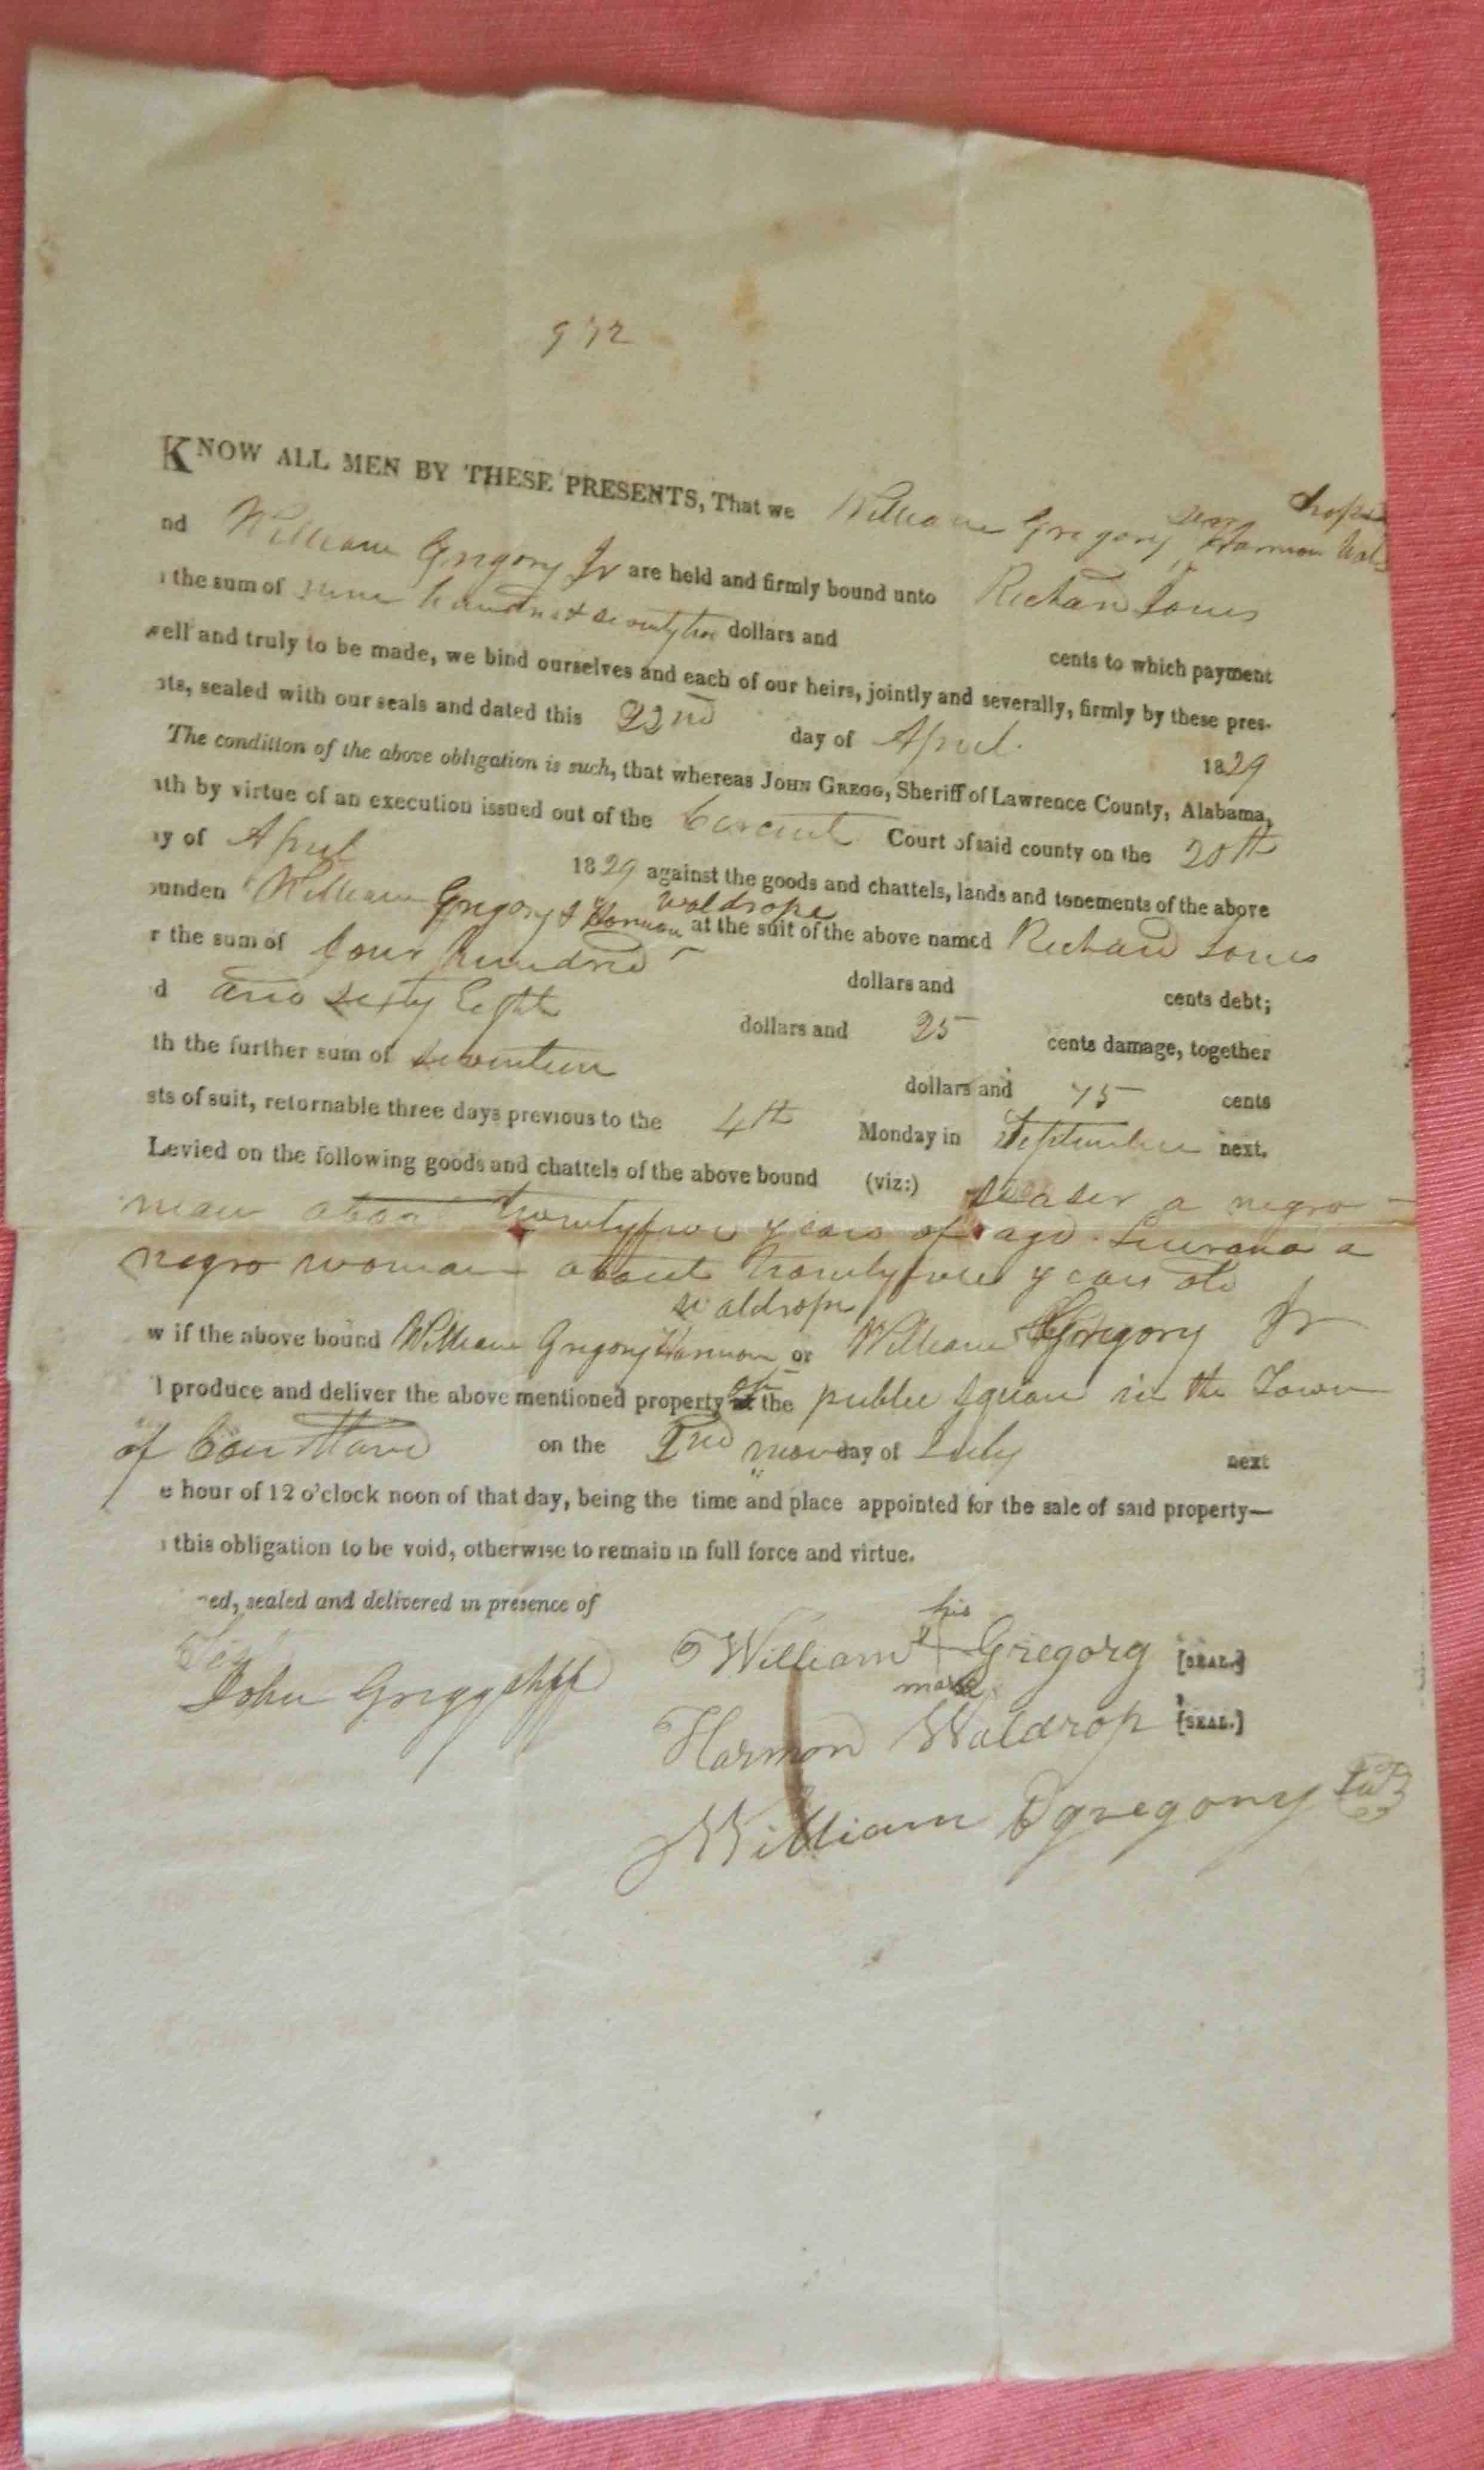 972
KNOW ALL MEN BY THESE PRESENTS, That we William Gregory senr Harmon Waldrope
nd William Gregory Jr are held and firmly bound unto Richard Jones
the sum of nine hundred & seventy two dollars and cents to which payment
well and truly to be made, we bind ourselves and each of our heirs, jointly and severally, firmly by these pres-
nts, sealed with our seals and dated this 22nd day of April 1829
The condition of the above obligation is such, that whereas JOHN GREGG, Sheriff of Lawrence County, Alabama,
ath by virtue of an execution issued out of the Circuit Court of said county on the 20th
ay of April 1829 against the goods and chattels, lands and tenements of the above
ounden William Gregory & Harmon Waldrope at the suit of the above named Richard Jones
r the sum of four hundred dollars and cents debt;
d and sixty Eight dollars and 25 cents damage, together
th the further sum of seventeen dollars and 75 cents
sts of suit, returnable three days previous to the 4th Monday in September next.
Levied on the following goods and chattels of the above bound (viz:) a negro
man about twenty five years of age a
negro woman about twenty five years old
w if the above bound William Gregory Harmon Waldrope or William Gregory Jr
l produce and deliver the above mentioned property on the public square in the Town
of Courtland on the 2nd monday of July next
e hour of 12 o'clock noon of that day, being the time and place appointed for the sale of said property—
this obligation to be void, otherwise to remain in full force and virtue.
ned, sealed and delivered in presence of
William his mark Gregory [SEAL.]
John Gregg Shff
Harmon Waldrop [SEAL.]
William Gregory